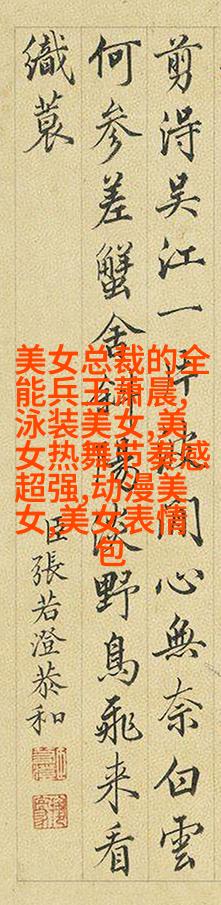 剪淂吴江一片閒心無奈白雲
何参差蟹舍斜陽野鳥飛来看
織蓑
臣張若澄恭和
美女总裁的全
能兵王萧晨,
泳装美女,美
女热舞节奏感
超强,动漫美
女,美女表情
包